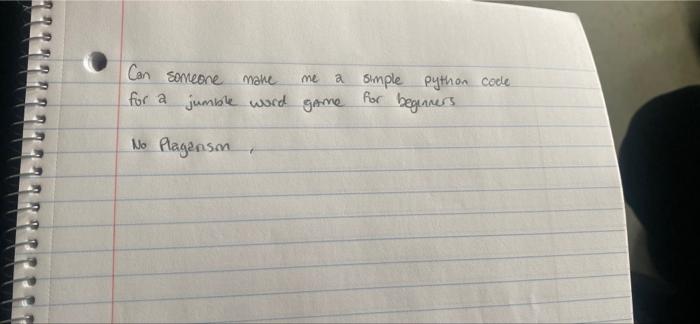 Can someone make me a simple python code
for a jumble word game for beginners
No Plagerism